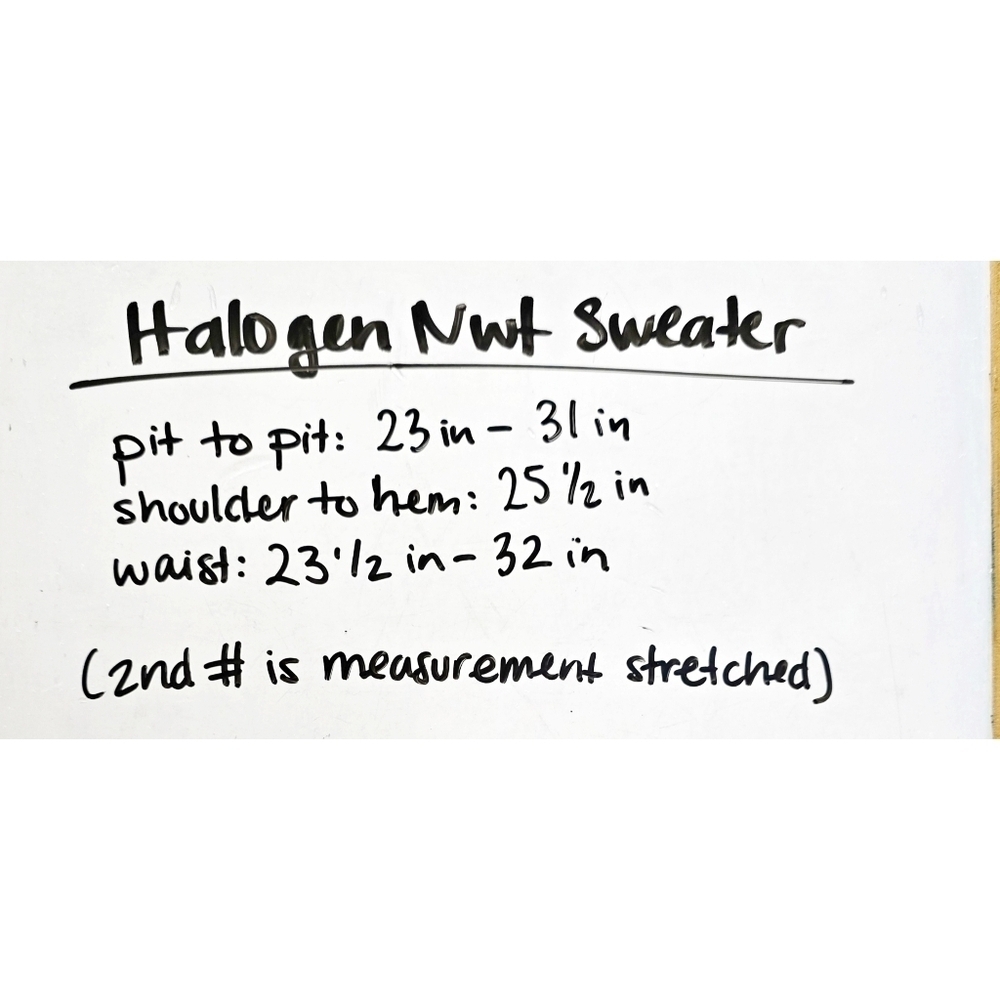 Halogen Nwt Sweater
pit to pit: 23 in - 31 in
shoulder to hem: 25 1/2 in
waist: 23 1/2 in - 32 in
(2nd # is measurement stretched)